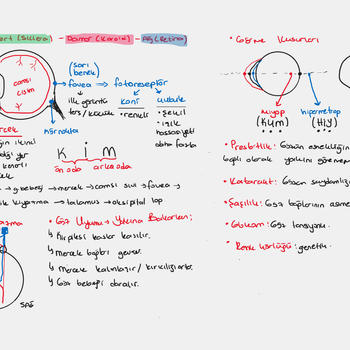 ert (Sklera) - Damar (Koroid) - Ağ (Retina)
(sarı benek)
fovea → fotoreseptör
camsı cisim
ilk görüntü
ters / küçük
koni
• renkli
çubuk
• şekil
• ışık hassasiyeti daha fazla
körnokta
ğin ikinci
K i m
ön oda arka oda
→ g.bebeği → mercek → camsı sıvı → fovea →
ilk uyarma → talamus → oksipital lop
• Göz Uyumu → Yakına Bakarken;
↳ Kirpiksi kaslar kasılır.
↳ mercek bağları gevşer.
↳ Mercek kalınlaşır / kırıcılığı artar.
↳ Göz bebeği daralır.
SAĞ
• Görme Kusurları
miyop
(KUM)
hipermetrop
(HİY)
• Presbitlik: Gözün esnekliğin
bağlı olarak yakını göremem
• Katarakt: Gözün saydamlığı
• Şaşılık: Göz kaslarının
• Glokom: Göz tansiyonu.
• Renk körlüğü: genetik.